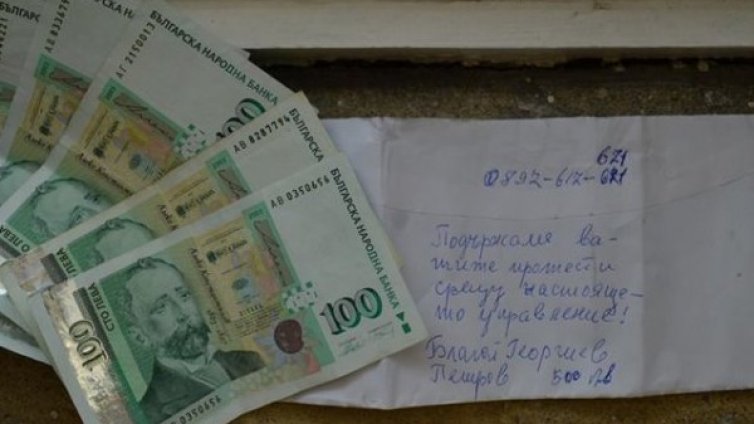 БЪЛГАРСКА НАРОДНА БАНКА
АГ 2150013
БЪЛГАРСКА НАРОДНА БАНКА
АВ 8287794
БЪЛГАРСКА НАРОДНА БАНКА
АВ 0350656
100
СТО ЛЕВА
100
АВ 0350656
621
0892-612-621
Подържаме ва-
шиже протести
срещу настояще-
то управление!
Благой Георгиев
Петров 500 лв